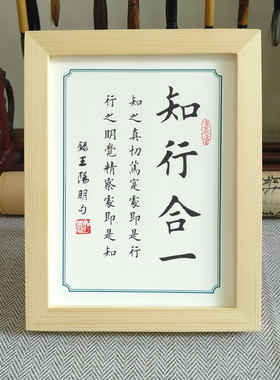 知行合一
知之真切篤寔處即是行
行之明覺精察處即是知
錄王陽明句